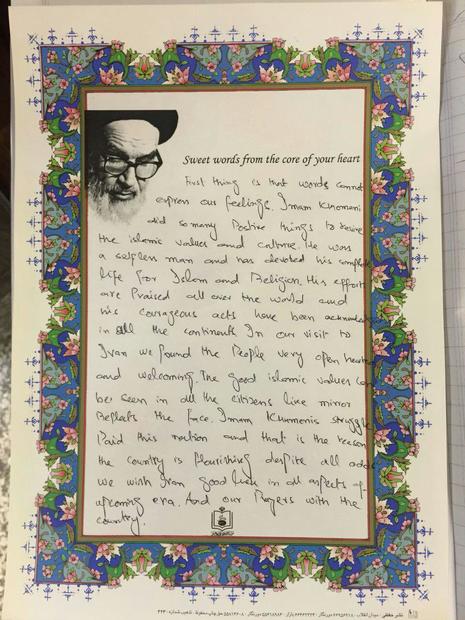 Sweet words from the core of your heart
First thing is that words cannot
express our feelings. Imam Khomeni
did so many Postive things to revive
the islamic values and culture. He was
a selfless man and has devoted his complete
life for Islam and Religion. His efforts
are Praised all over the world and
his courageous acts have been acknowledged
in all the continents In our visit to
Iran we found the People very open hearted
and welcoming. The good islamic values can
be seen in all the citizens like mirror
Reflects the face. Imam Khomenis struggle
Paid this nation and that is the reason
the country is flourishing despite all odds
we wish Iran good luck in all aspects of
upcoming era. And our Prayers with the
country.